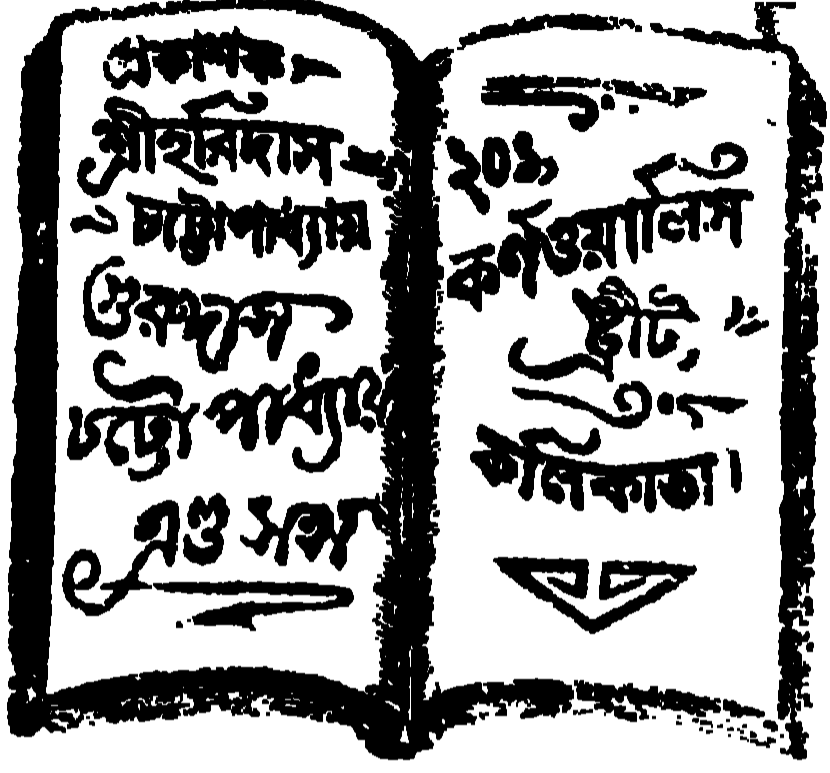 প্রকাশক
শ্রীহরিদাস
চট্টোপাধ্যায়
গুরুদাস
চট্টোপাধ্যায়
এণ্ড সন্স
২০৯
কর্ণওয়ালিস
ষ্ট্রীট,
কলিকাতা।